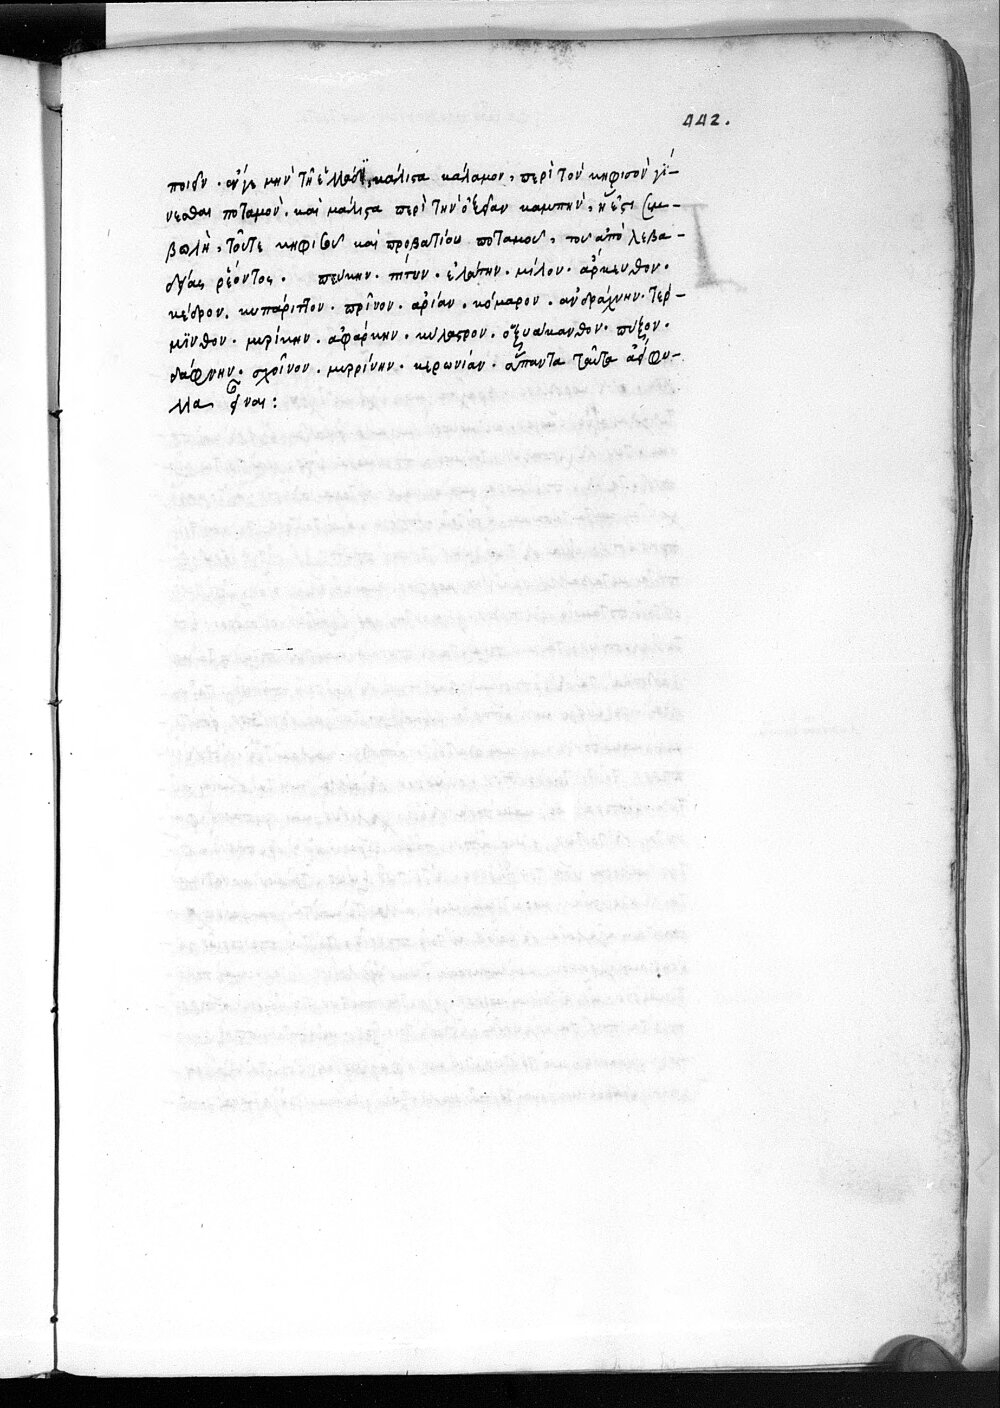 442.
ποιεῖν. οὐ γε μὴν τῇ ἑλλάδι, κάλιστα κάλαμον, περὶ τὸν κηφισὸν γί-
νεσθαι ποταμόν. καὶ μάλιστα περὶ τὴν ὀξεῖαν καμπὴν, ἥ ἐστι συμ-
βολὴ, τοῦτε κηφισοῦ καὶ προβατίου ποταμοῦ, τοῦ ἀπὸ λεβα-
δείας ῥέοντος. πεύκην. πίτυν. ἐλάτην. μίλον. ἄρκευθον.
κέδρον. κυπάριττον. πρῖνον. ἀρίαν. κόμαρον. ἀνδράχνην. τέρ-
μινθον. μυρίκην. ἀφάρκην. κύλαστρον. ὀξυάκανθον. πύξον.
δάφνην. σχοῖνον. μυρρίνην. κερωνίαν. ἅπαντα ταῦτα ἀείφυ-
λλα εἶναι: